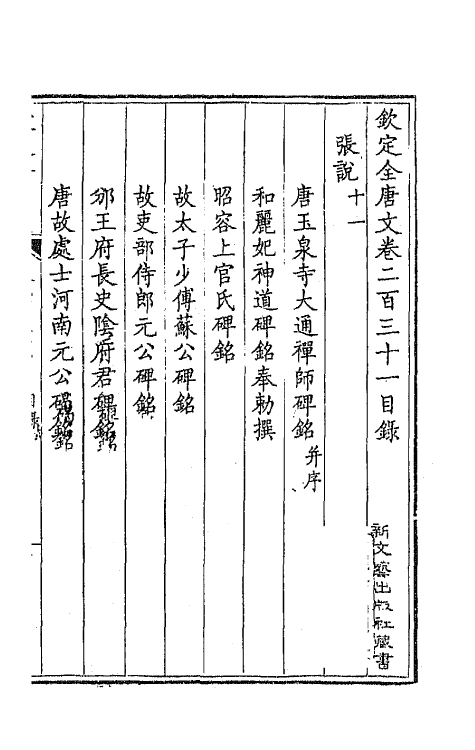 欽定全唐文卷二百三十一目錄
張說十一
唐玉泉寺大通禪師碑銘并序
和麗妃神道碑銘奉勅撰
昭容上官氏碑銘
故太子少傅蘇公碑銘
故吏部侍郎元公碑銘
邠王府長史陰府君碑銘
唐故處士河南元公碣銘
新文豐出版社藏書